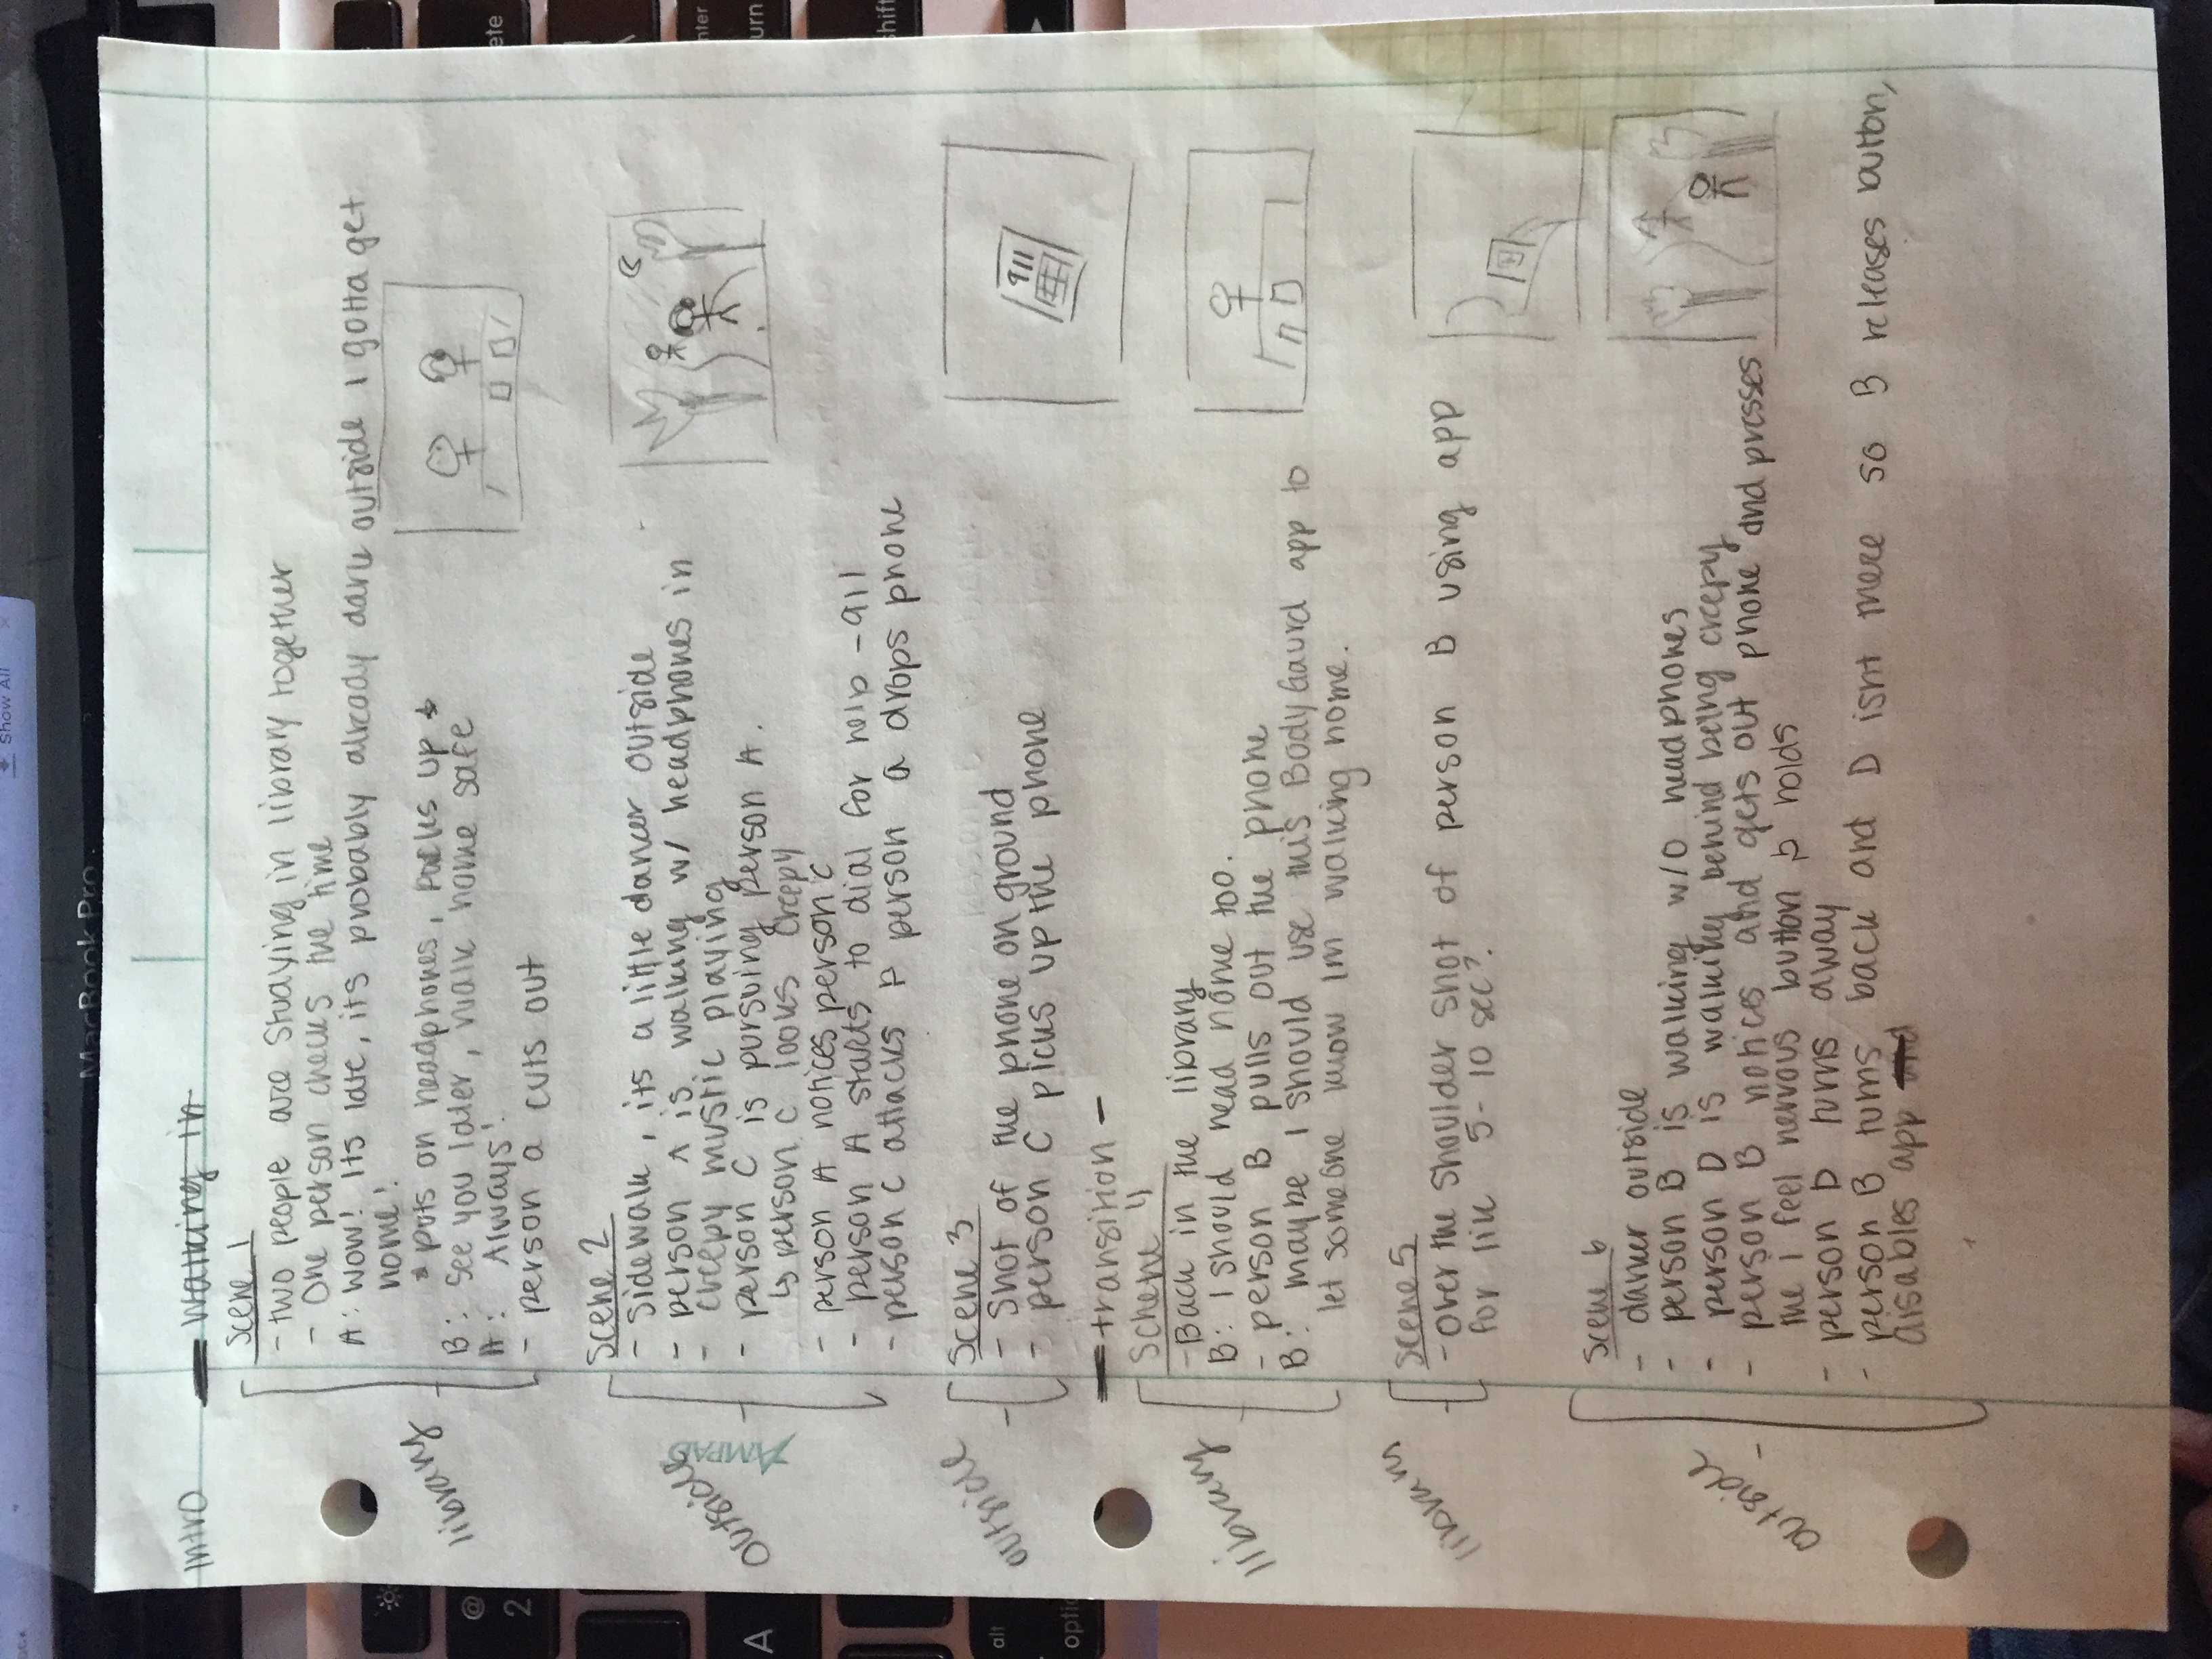 Show All
MacBook Pro
Intro
walking in
Scene 1
- two people are studying in library together
- One person checks the time
A: Wow! Its late, its probably already dark outside I gotta get
home!
* puts on headphones, packs up *
library
B: See you later, walk home safe
A: Always!
- person a cuts out
Scene 2
- Sidewalk, its a little darker outside
- person A is walking w/ headphones in
- creepy mustic playing
outside
AMPAD
- person C is pursuing person A.
↳ person C looks creepy
- person A notices person C
- person A starts to dial for help - 911
- person C attacks & person a drops phone
outside
Scene 3
- Shot of the phone on ground
- person C picks up the phone
911
- transition -
Schene 4
- Back in the library
library
B: I should head home too.
- person B pulls out the phone
B: maybe I should use this BodyGaurd app to
let someone know Im walking home.
library
Scene 5
- over the shoulder shot of person B using app
for like 5-10 sec?
Scene 6
- darker outside
- person B is walking w/o headphones
- person D is walking behind being creepy
outside
- person B notices and gets out phone and presses
the I feel nervous button & holds
- person D turns away
- person B turns back and D isnt there so B releases button,
disables app and
@
2
A
alt